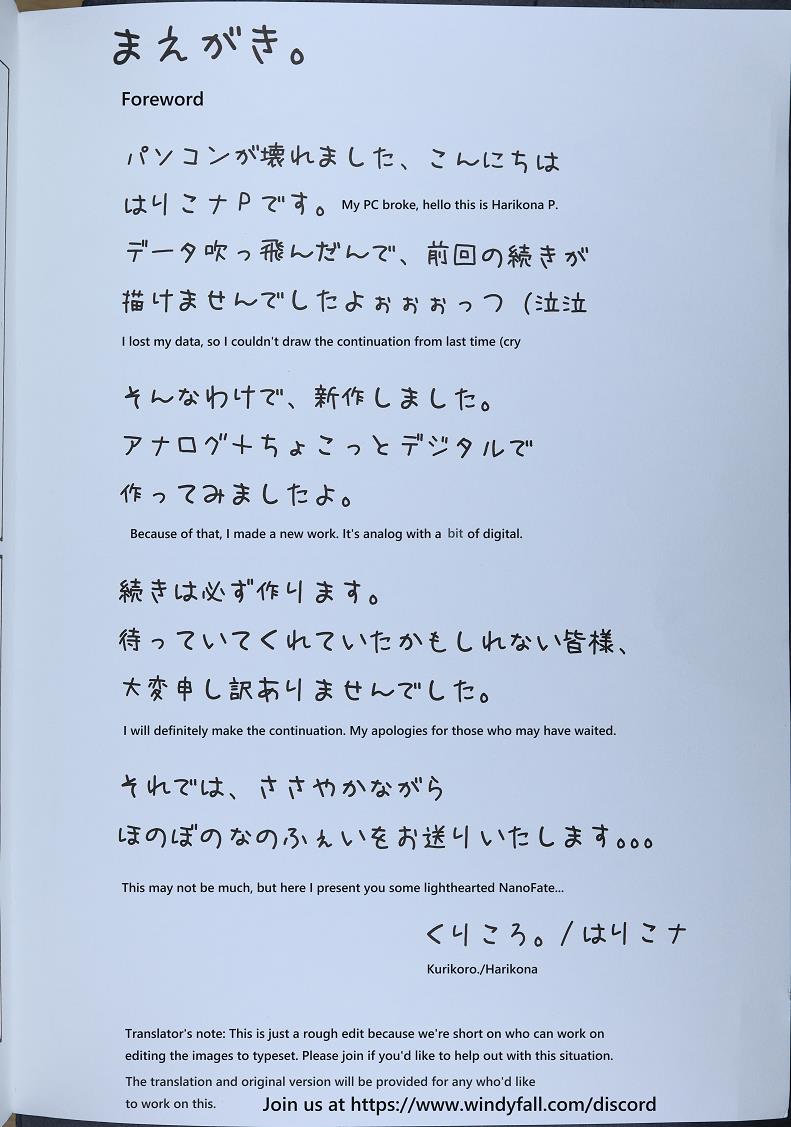 まえがき。
Foreword
パソコンが壊れました、こんにちは
はりこナPです。 My PC broke, hello this is Harikona P.
データ吹っ飛んだんで、前回の続きが
描けませんでしたよぉぉぉっつ（泣泣
I lost my data, so I couldn't draw the continuation from last time (cry
そんなわけで、新作しました。
アナログ＋ちょこっとデジタルで
作ってみましたよ。
Because of that, I made a new work. It's analog with a bit of digital.
続きは必ず作ります。
待っていてくれていたかもしれない皆様、
大変申し訳ありませんでした。
I will definitely make the continuation. My apologies for those who may have waited.
それでは、ささやかながら
ほのぼのなのふぇいをお送りいたします。。。
This may not be much, but here I present you some lighthearted NanoFate...
くりころ。/はりこナ
Kurikoro./Harikona
Translator's note: This is just a rough edit because we're short on who can work on
editing the images to typeset. Please join if you'd like to help out with this situation.
The translation and original version will be provided for any who'd like
to work on this. Join us at https://www.windyfall.com/discord